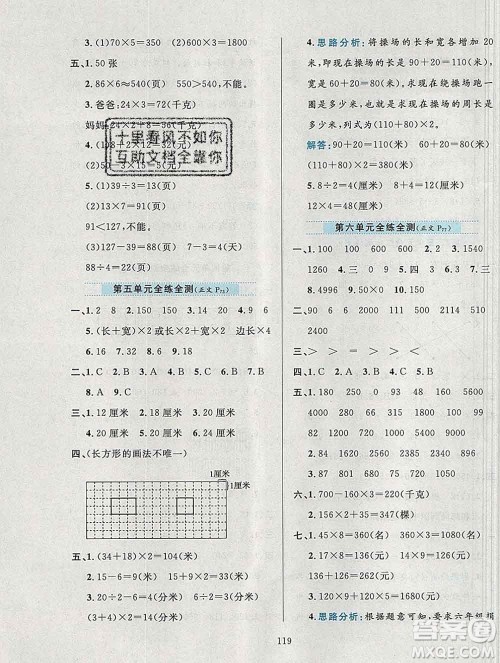 3.(1)70×5=350 (2)6×300=1800
五、1. 50 张
2. 86×6≈540(页) 550>540(页),不能。
3. 爸爸:24×3=72(千克)
妈妈:
十里春风不如你
互助文档全靠你
5.(1)39÷3=13(页)
(2)13×7=91(页)
91<127,不能。
88÷4=22(页)
第五单元全练全测(正文 P₇₅)
一、1. 12 8 2. 24 3. 20 4. 2 15
5. (长+宽)×2 边长×4
6. 16 7. 32 8. 18 9. 24
二、1. B 2. C 3. B 4. A 5. A 6. C 7. B
8. A 9. C
三、1. 12 厘米 2. 18 厘米 3. 24 厘米
4. 15 厘米 5. 20 厘米 6. 14 厘米
四、(长方形的画法不唯一)
1厘米
1厘米
五、1. (34+18)×2=104(米)
2. 15-6=9(米) (15+9)×2=48(米)
3. 20÷2-6=4(厘米)
(2)6×3=18(米)
4. 思路分析:将操场的长和宽各增加 20
米,即现在操场的长为 90+20=110
(米),宽为 60+20=80(米)。求现在
操场周长是多少米,也就是求出现在
长方形的周长。求现在绕操场跑一圈
多少米,也就是求出现在操场的周长是
多少米,列式为(110+80)×2=380(米)。
解答:90+20=110(米) 60+20=80(米)
(110+80)×2=380(米)
5. 2+8=10(厘米) 10+2=12(厘米)
12×4=48(厘米)
第六单元全练全测(正文 P₇₇)
一、1. 100 600 500 2. 0 3. 2 4. 1540
1260 5. 8 6. 三 四 7. 6 3
8. 4996 9. 50 10. 0
二、6300 0 450 2000 818 4200
480 0 2100 2000 1120 4514
三、> > = < =
四、1. B 2. A 3. C 4. C 5. C
五、1642 2383 5472 2352 850 4230
1827 4000
六、1. 700-160×3=220(千克)
2. 116×3-1=347(棵)
七、1. 45×8=360(名) 360=360,够。
2. 108×4=432(元) 360×3=1080(元)
3. 136÷2=68(元) 68+136=204(元)
204×4=816(元)
4. 思路分析:根据题意可知,要求六年级捐
119